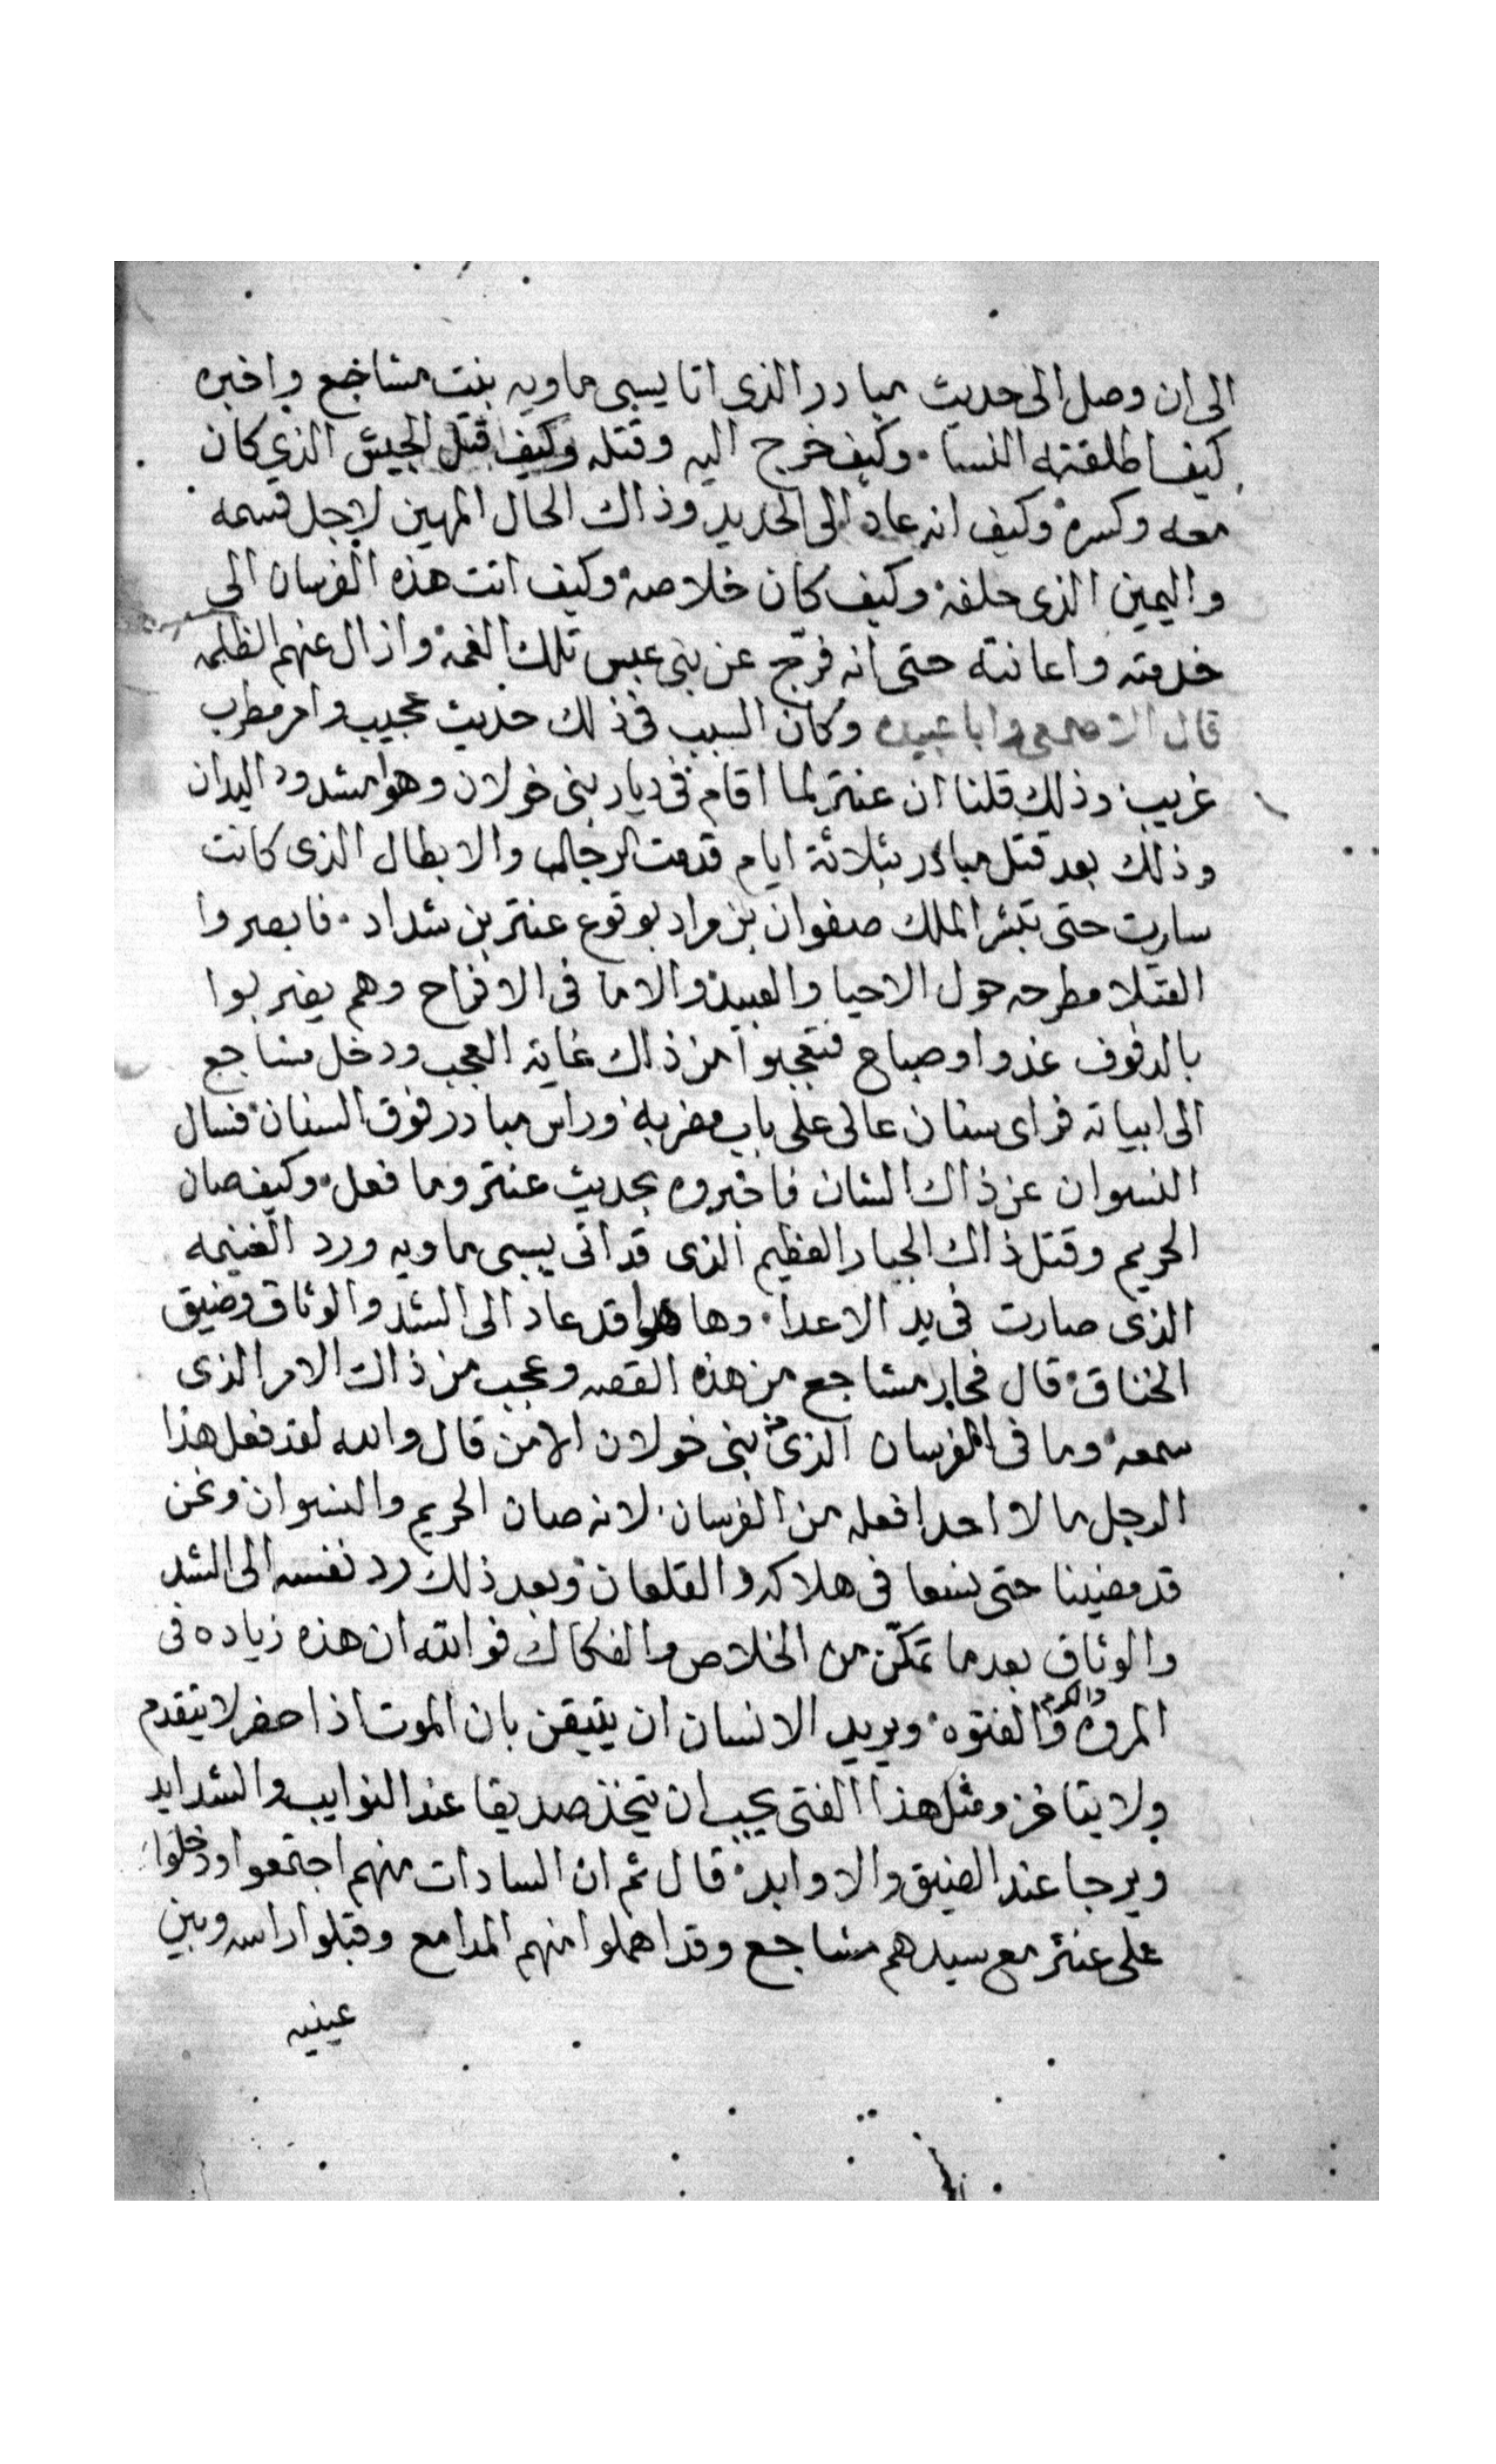 الى ان وصل الى حديث مبادر الذى اتا يسبى ماويه بنت مشاجع واخبره
كيف اطلقته النسا. وكيف خرج اليه وقتله وكيف قتل الجيش الذي كان
معه وكسره وكيف انه عاد الى الحديد وذاك الحال المهين لاجل قسمه
واليمين الذى حلفه وكيف كان خلاصه وكيف اتت هذه الفرسان الى
خدمته واعانته حتى انه فرّج عن بنى عبس تلك الغمه وازال عنهم الظلمه
قال الاصمعى وابا عبيده وكان السبب فى ذلك حديث عجيب وامر مطرب
غريب وذلك قلنا ان عنتر لما اقام فى ديار بنى خولان وهو مشدود اليدان
وذلك بعد قتل مبادر بثلاثة ايام قدمت الرجال والابطال الذى كانت
سارت حتى تبشر الملك صفوان بن مراد بوقوع عنتر بن شداد. فابصروا
القتلا مطرحه حول الاحيا والعبيد والاما فى الافراح وهم يضربوا
بالدفوف غدوا وصباح فتعجبوا من ذاك غاية العجب ودخل مشاجع
الى ابياته فراى سنان عالى على باب مضربه وراس مبادر فوق السنان فسال
النسوان عن ذاك الشان فاخبروه بحديث عنتر وما فعل وكيف صان
الحريم وقتل ذاك الجبار العظيم الذى قد اتى يسبى ماويه ورد الغنيمه
الذى صارت فى يد الاعدا. وها هوا قد عاد الى الشد والوثاق وضيق
الخناق قال فحار مشاجع من هذه القصه وعجب من ذاك الامر الذى
سمعه وما فى الفرسان الذى من بنى خولان الا من قال والله لقد فعل هذا
الرجل ما لا احدا فعله من الفرسان لانه صان الحريم والنسوان ونحن
قد مضينا حتى نسعا فى هلاكه والقلعان وبعد ذلك رد نفسه الى الشد
والوثاق بعد ما تمكّن من الخلاص والفكاك فوالله ان هذه زياده فى
المروه والكرم والفتوه ويريد الانسان ان يتيقن بان الموت اذا حضر لا يتقدم
ولا يتاخر ومثل هذا الفتى يجب ان يتخذ صديقا عند النوايب والشدايد
ويرجا عند الضيق والاوابد قال ثم ان السادات منهم اجتمعوا ودخلوا
على عنتر مع سيدهم مشاجع وقد اهملوا منهم المدامع وقبلوا راسه وبين
عينيه